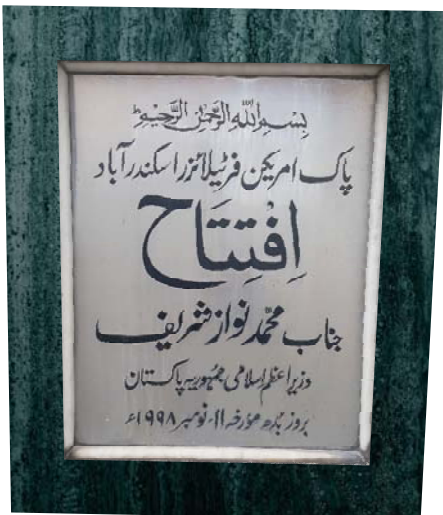 بِسْمِ اللّٰهِ الرَّحْمٰنِ الرَّحِيْمِ
پاک امریکن فرٹیلائزر اسکندر آباد
اِفتِتَاح
جناب محمّد نواز شریف
وزیرِ اعظم اسلامی جمہوریہ پاکستان
بروز بدھ مؤرخہ ۱۱۔ نومبر ۱۹۹۸ء